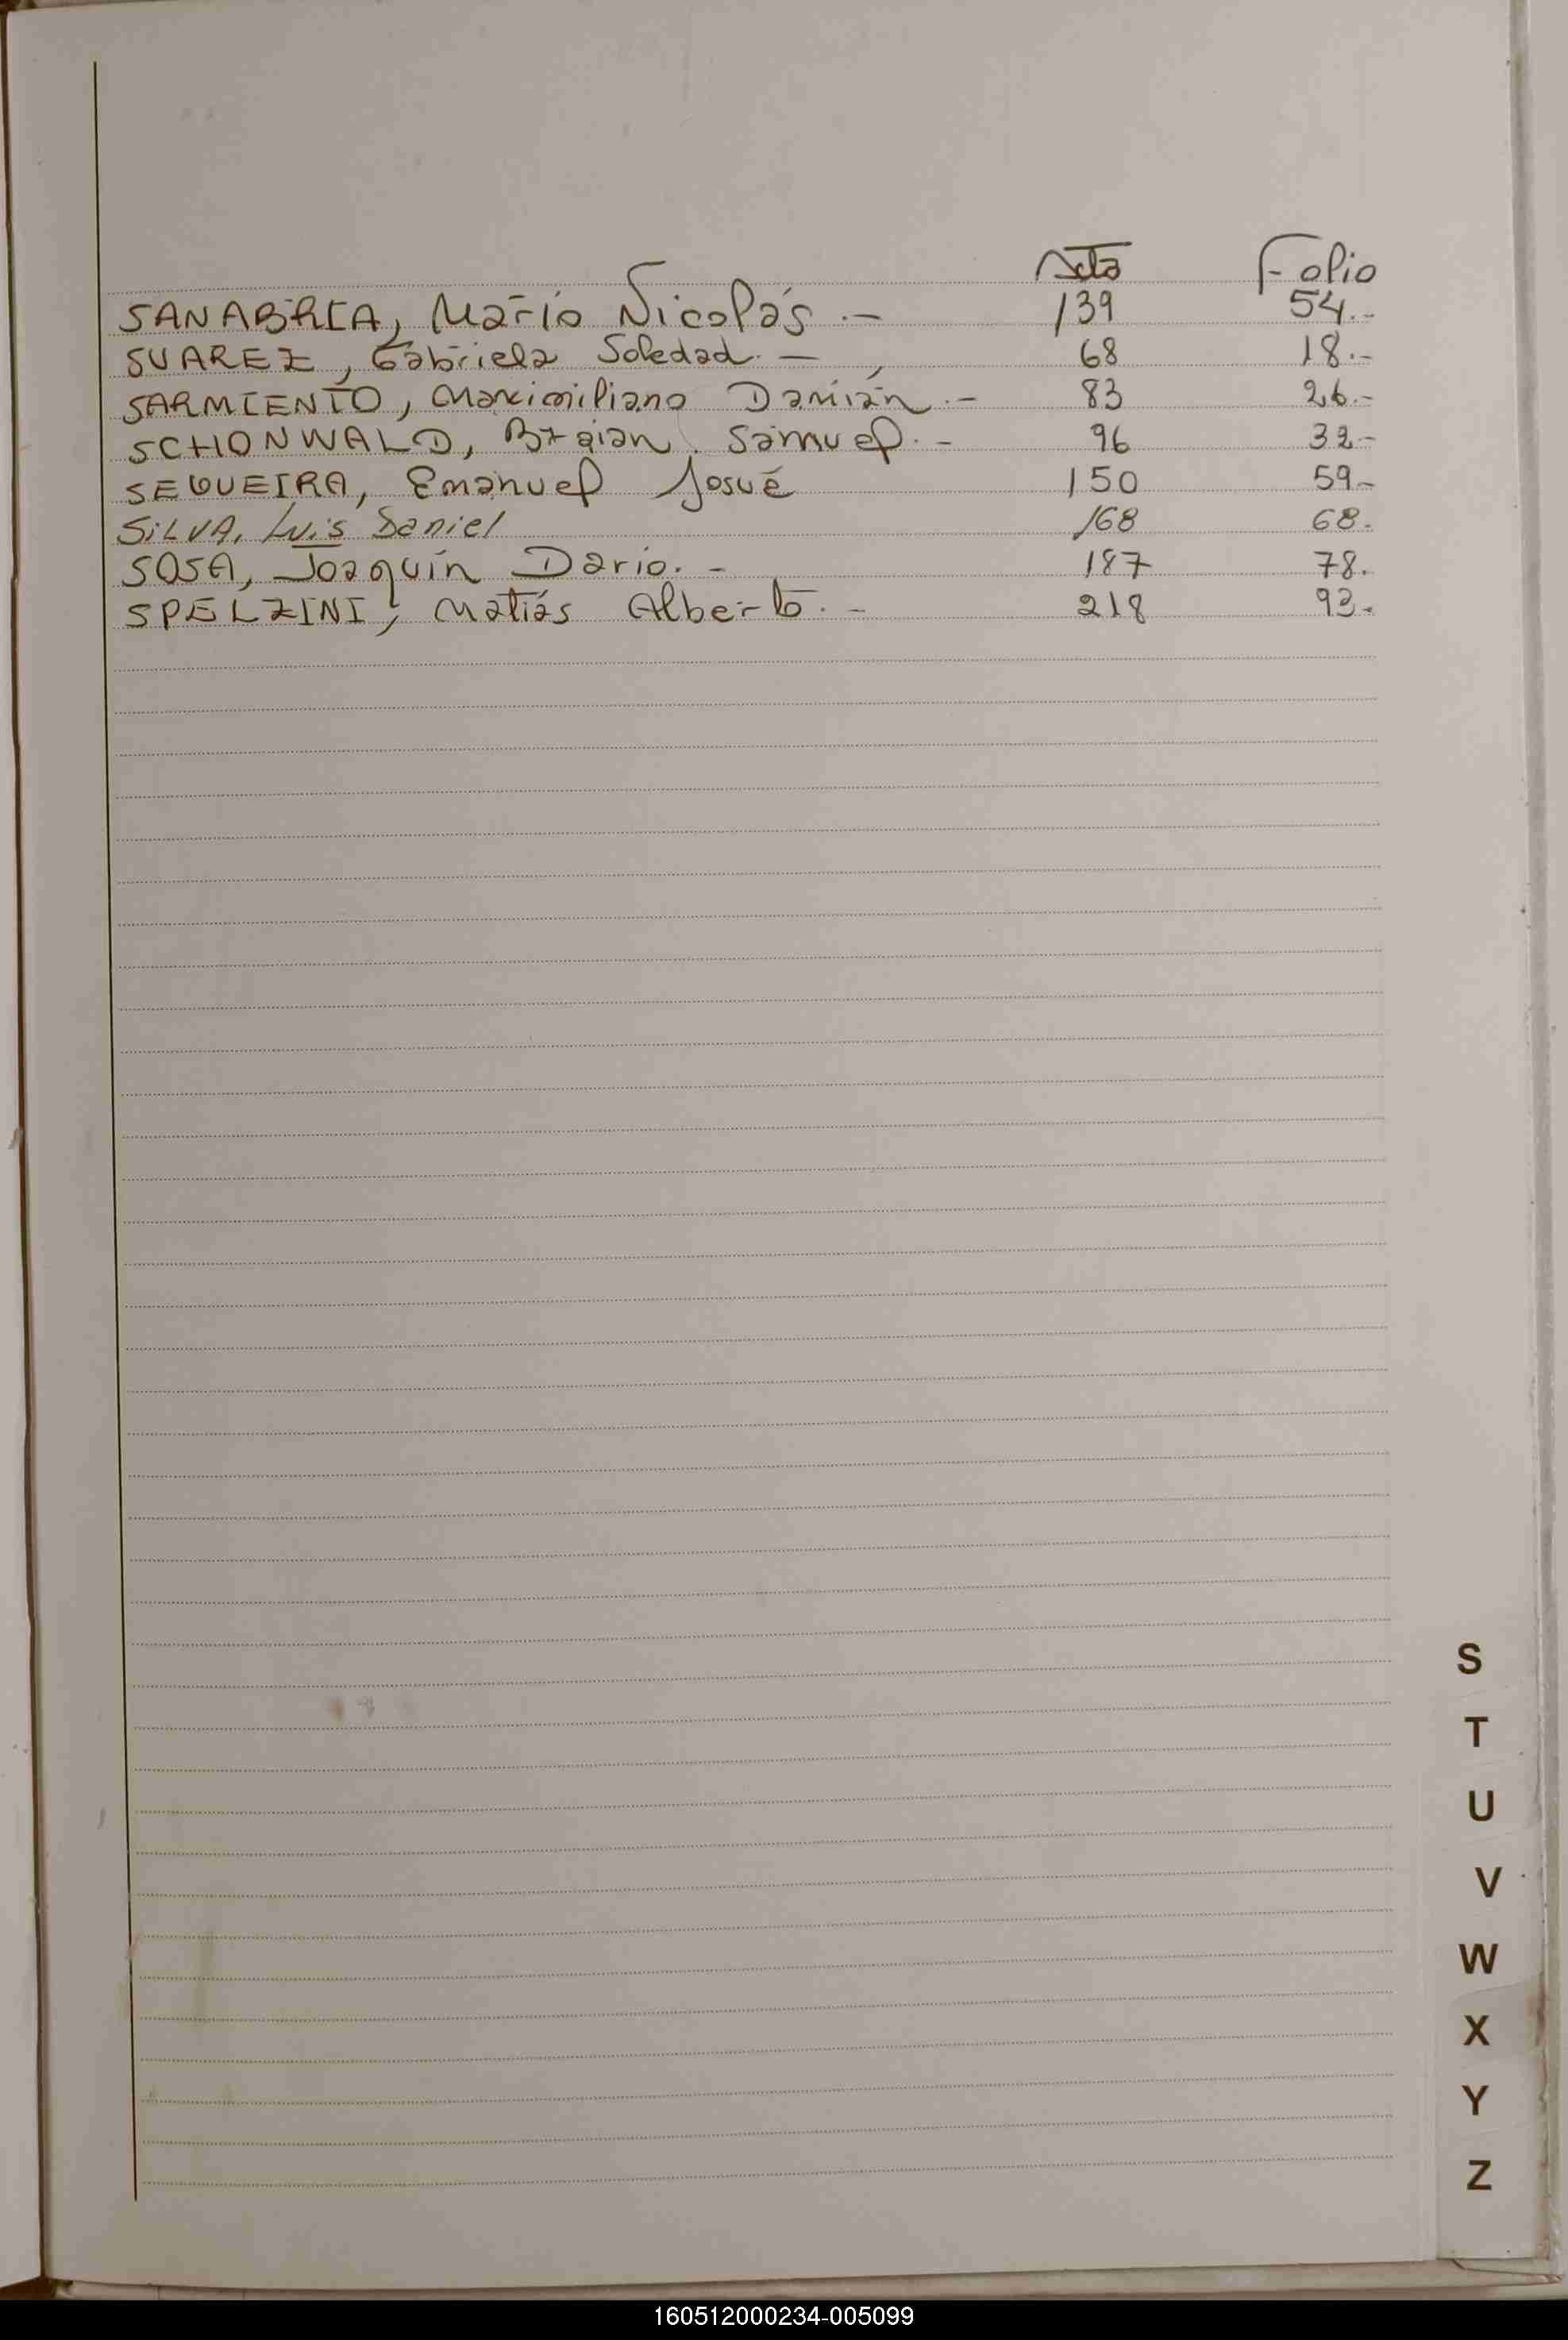 Acta Folio
SANABRIA, Mario Nicolás.- 139 54.-
SUAREZ, Gabriela Soledad.- 68 18.-
SARMIENTO, Maximiliano Damián.- 83 26.-
SCHONWALD, Braian Samuel.- 96 32-
SEQUEIRA, Emanuel Josué 150 59-
SILVA, Luis Daniel 168 68.
SOSA, Joaquín Dario.- 187 78.
SPELZINI, Matías Alberto.- 218 93.
S
T
U
V
W
X
Y
Z
160512000234-005099